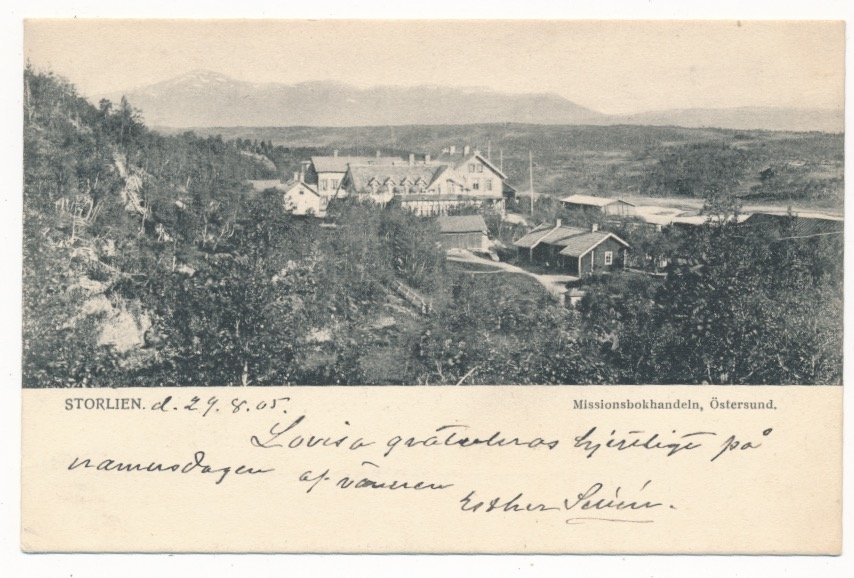 STORLIEN. d. 29. 8. 05.
Missionsbokhandeln, Östersund.
Lovisa gratuleras hjertligt på
namnsdagen af vännen
Esther